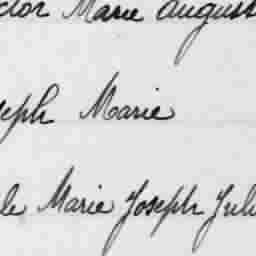 ctor Marie August
seph Marie
le Marie Joseph Juli